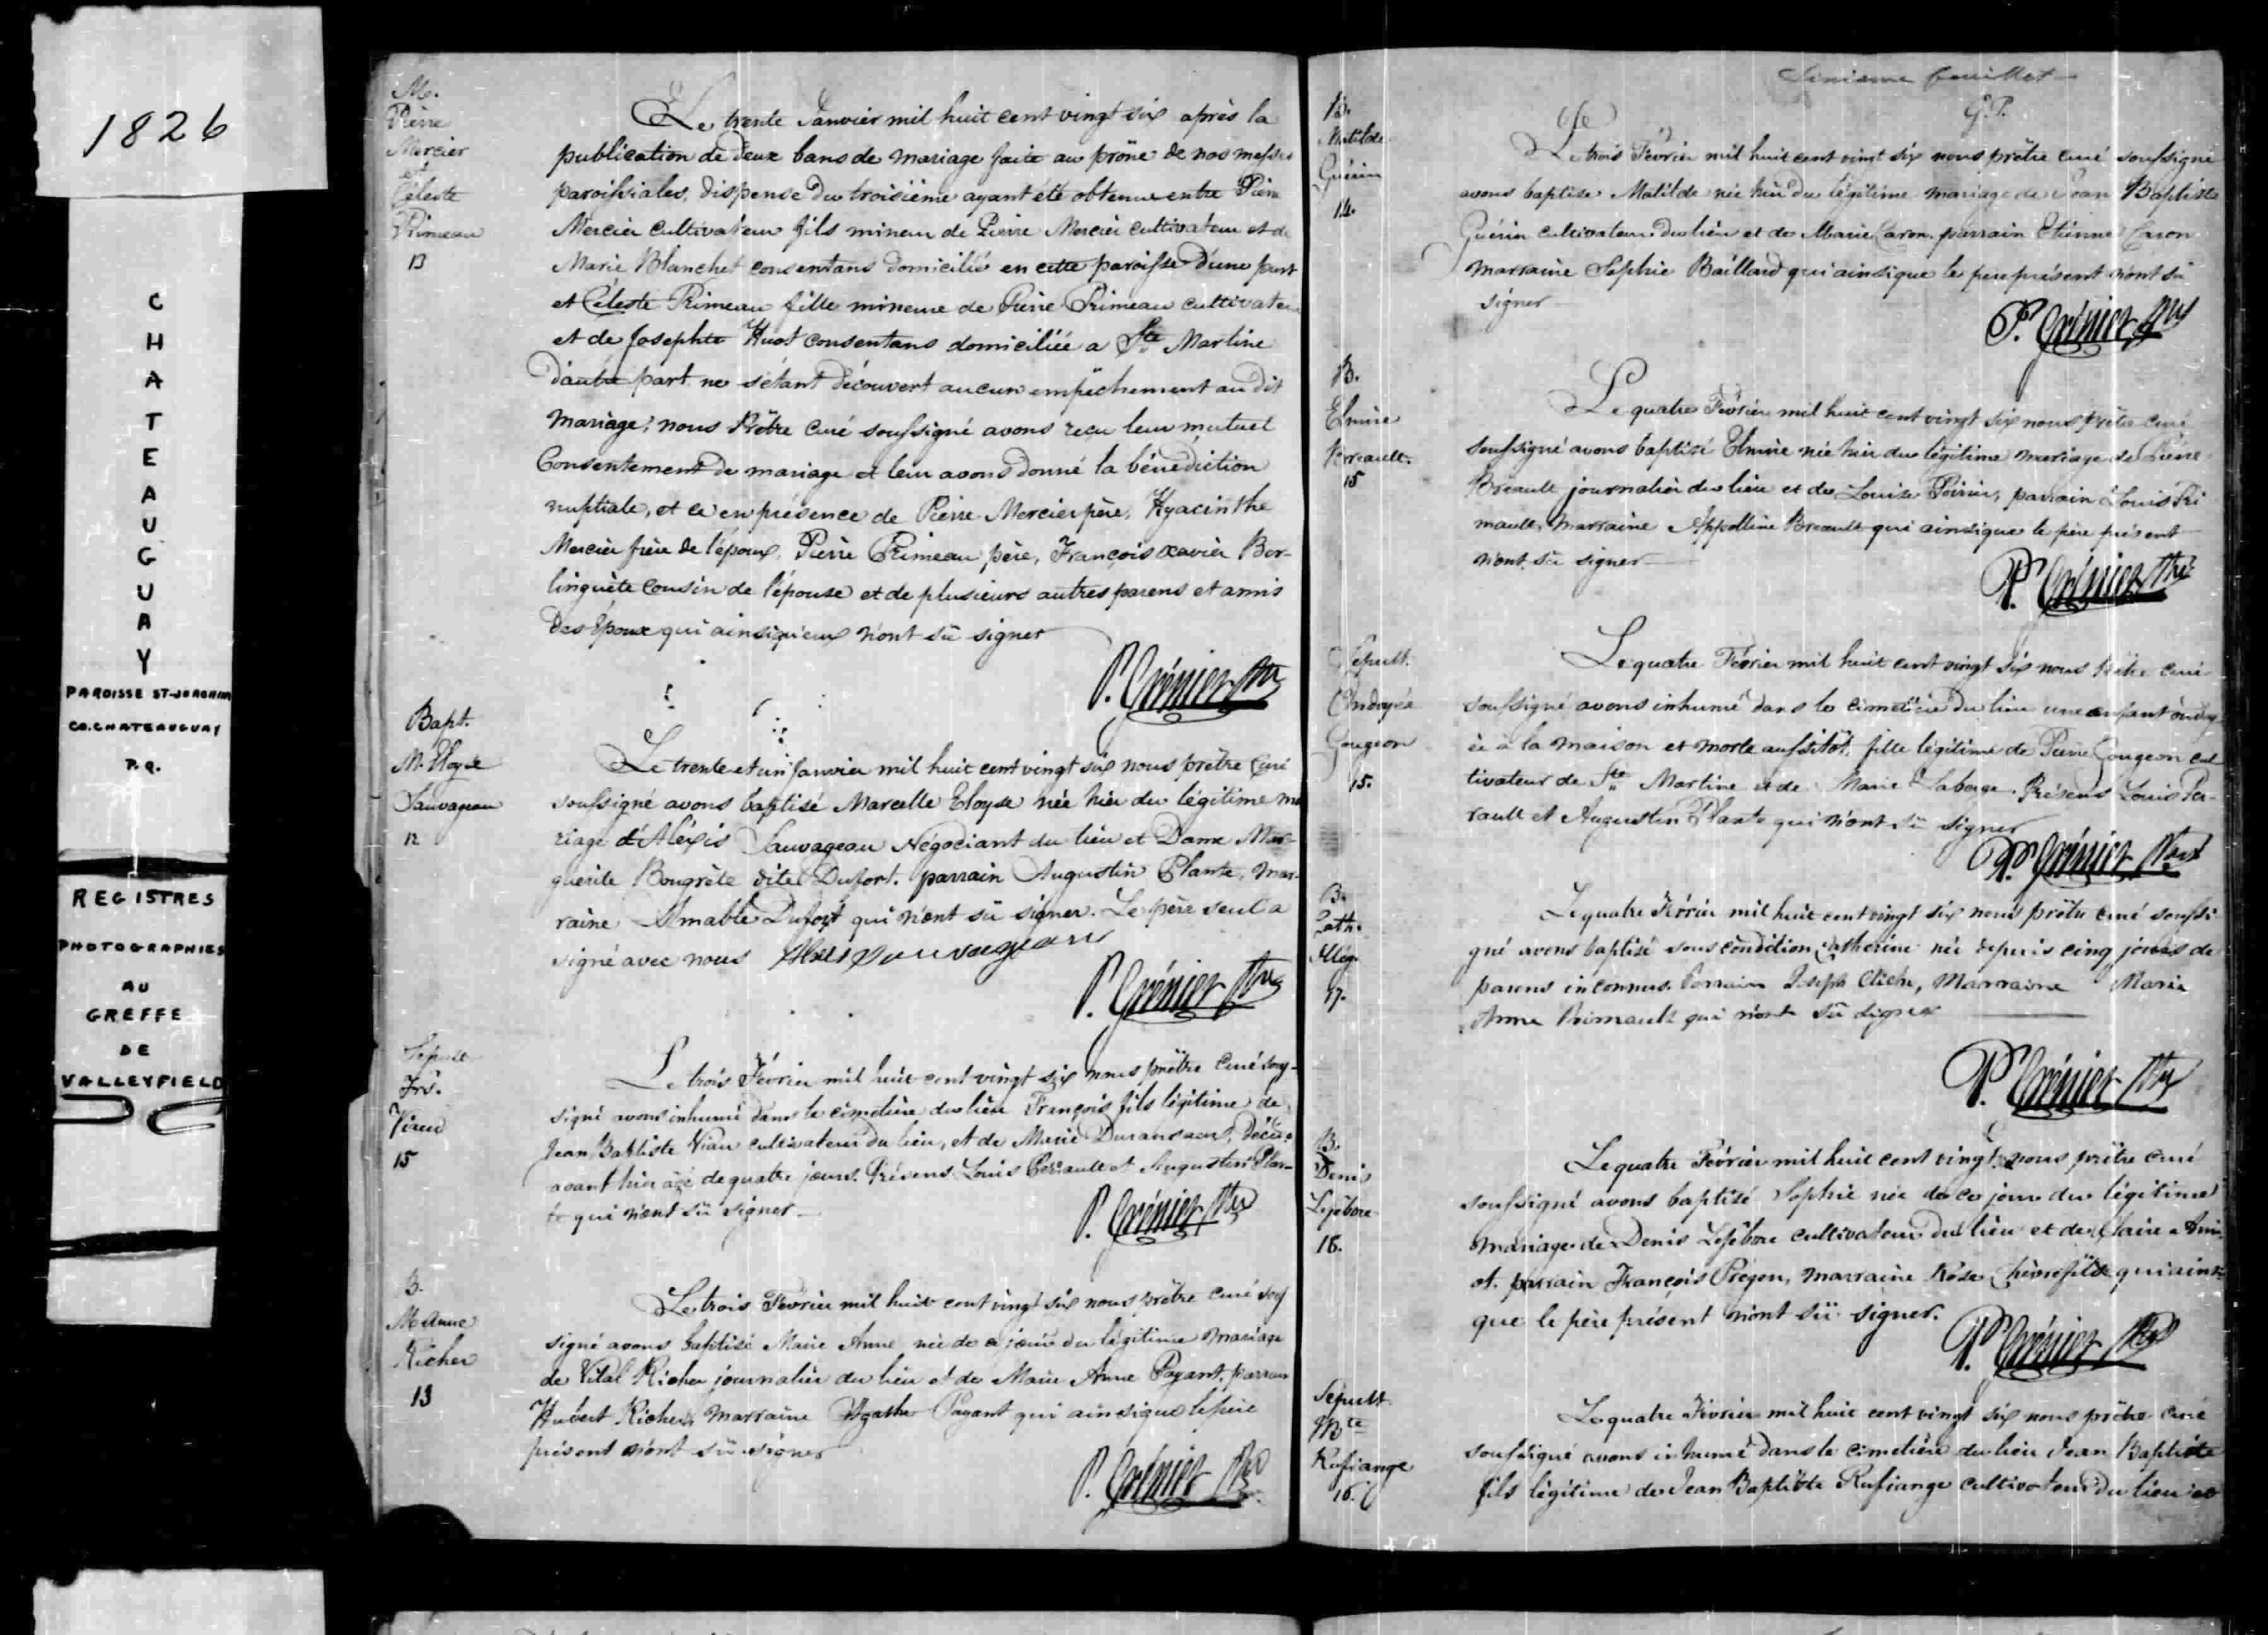 1826
C
H
A
T
E
A
U
G
U
A
Y
PAROISSE ST-JOACHIM
CO. CHATEAUGUAY
P.Q.
REGISTRES
PHOTOGRAPHIES
AU
GREFFE
DE
VALLEYFIELD
M.
Pierre
Mercier
et
Céleste
Primeau
13
Le trente Janvier mil huit cent vingt six après la
publication de deux bans de mariage faite au prône de nos messes
paroissiales, dispense du troisième ayant été obtenue entre Pierre
Mercier cultivateur fils mineur de Pierre Mercier cultivateur et de
Marie Blanchet consentans domicilié en cette paroisse d'une part
et Céleste Primeau fille mineure de Pierre Primeau cultivateur
et de Josephte Huot consentans domiciliée a Ste Martine
d'autre part ne s'étant découvert aucun empêchement au dit
mariage; nous Prêtre curé soussigné avons reçu leur mutuel
Consentement de mariage et leur avons donné la bénédiction
nuptiale, et ce en présence de Pierre Mercier père, Hyacinthe
Mercier frère de l'époux, Pierre Primeau père, François Xavier Ber-
linguète cousin de l'épouse et de plusieurs autres parens et amis
des Epoux qui ainsi qu'eux n'ont sû signer
P. Grénier Ptre
Bapt.
M. Eloyse
Sauvageau
12
Le trente et un Janvier mil huit cent vingt six nous prêtre Curé
soussigné avons baptisé Marcelle Eloyse née hier du légitime ma
riage d'Aléxis Sauvageau Négociant du lieu et Dame Mar-
guerite Bougrète dite Dufort. parrain Augustin Plante, mar-
raine Amable Dufort qui n'ont sû signer. Le père seul a
signé avec nous Alexis Sauvageau
P. Grénier Ptre
Sepult
Frs.
Viau
15
Le trois Février mil huit cent vingt six nous prêtre curé sous-
signé avons inhumé dans le cimetière du lieu François fils légitime de
Jean Baptiste Viau cultivateur du lieu, et de Marie décédé
avant hier agé de quatre jours. Présens Louis Perrault et Augustin Plan-
te qui n'ont sû signer
P. Grénier Ptre
B.
M Anne
Richer
13
Le trois Février mil huit cent vingt six nous prêtre curé sous
signé avons baptisé Marie Anne née de ce jour du légitime mariage
de Vital Richer journalier du lieu et de Marie Anne Payant. parrain
Hubert Richer, marraine Agathe Payant qui ainsi que le père
présent n'ont sû signer
P. Grénier Ptre
Sixieme feuillet
G.P.
B.
Matilde
Guérin
14.
Le trois Février mil huit cent vingt six nous prêtre curé soussigné
avons baptisé Matilde née hier du légitime mariage de Jean Baptiste
Guérin cultivateur du lieu et de Marie Caron. parrain Etienne Caron
marraine Sophie Baillard qui ainsi que le pere présent n'ont su
signer
P. Grénier Ptre
B.
Elmire
Breault.
15
Le quatre Février mil huit cent vingt six nous prêtre curé
soussigné avons baptisé Elmire née hier du légitime mariage de Pierre
Breault journalier du lieu et de Louise Poirier, parrain Louis Pri
mault, marraine Appolline Breault qui ainsi que le père présent
n'ont sû signer
P. Grénier Ptre
Sépult.
Ondoyée
Gougeon
15.
Le quatre Février mil huit cent vingt six nous Prêtre curé
soussigné avons inhumé dans le cimetière du lieu une enfant ondoy
ée à la maison et morte aussitôt, fille légitime de Pierre Gougeon cul
tivateur de Ste Martine et de Marie Laberge. Présens Louis Per-
rault et Augustin Plante qui n'ont sû signer
P. Grénier Ptre
B.
Cath.
Illég.
17.
Le quatre Février mil huit cent vingt six nous prêtre curé soussi
gné avons baptisé sous condition Catherine née depuis cinq jours de
parens inconnus. Parrain Joseph Cliche, Marraine Marie
Anne Primault qui n'ont sû signer
P. Grénier Ptre
B.
Denis
Lefebvre
18.
Le quatre Février mil huit cent vingt nous prêtre curé
soussigné avons baptisé Sophie née de ce jour du légitime
mariage de Denis Lefebvre cultivateur du lieu et de Claire
parrain François Prégen, marraine Rose Chèvrefils qui ainsi
que le père présent n'ont sû signer.
P. Grénier Ptre
Sepult
Bte
Rufiange
16.
Le quatre Février mil huit cent vingt six nous prêtre curé
soussigné avons inhumé dans le cimetière du lieu Jean Baptiste
fils légitime de Jean Baptiste Rufiange cultivateur du lieu et